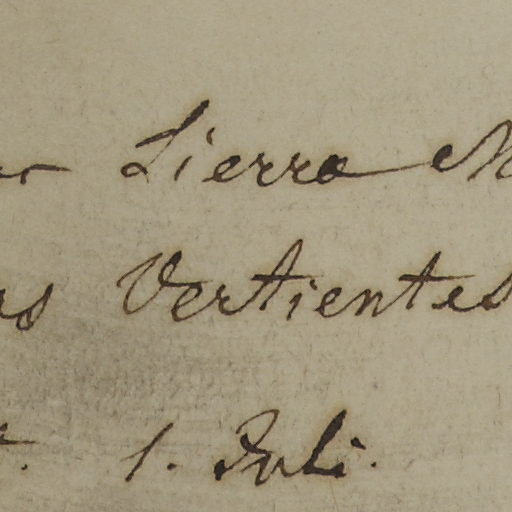 Sierra
Vertientes
1. Juli.